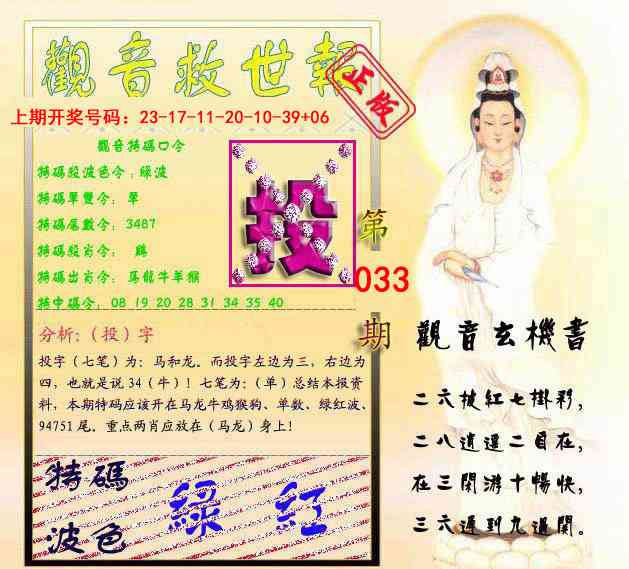 觀音救世報
正版
上期开奖号码：23-17-11-20-10-39+06
觀音特碼口令
特碼殺波色令：綠波
特碼單雙令：單
特碼尾數令：3487
特碼殺肖令：鷄
特碼出肖令：馬龍牛羊猴
特中碼令：08 19 20 28 31 34 35 40
投
第
033
期
分析:（投）字
投字（七笔）为：马和龙。而投字左边为三，右边为
四，也就是说 34（牛）！七笔为:（单）总结本报资
料，本期特码应该开在马龙牛鸡猴狗、单数、绿红波、
94751 尾。重点两肖应放在（马龙）身上！
特碼
波色
綠 紅
觀音玄機書
二六披紅七掛彩，
二八逍遥二自在，
在三関游十暢快，
三六通到九通関。